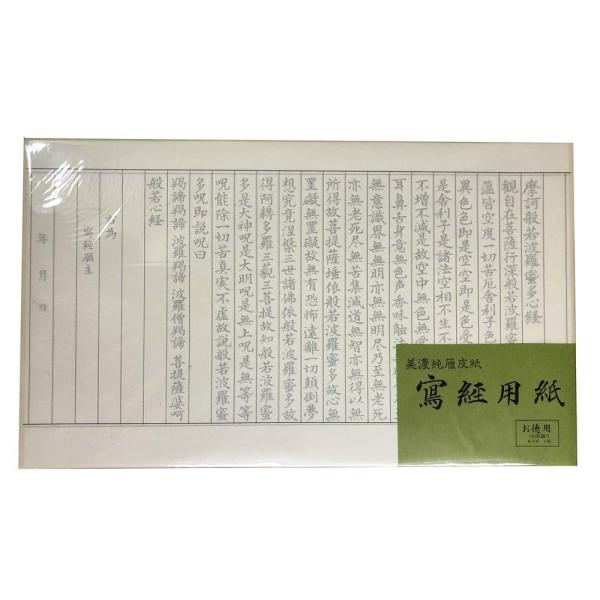 摩訶般若波羅蜜多心経
観自在菩薩行深般若波羅蜜
蘊皆空度一切苦厄舎利子色
異色色即是空空即是色受
是舎利子是諸法空相不生不
不増不減是故空中無色無受
耳鼻舌身意無色声香味触法
無意識界無無明亦無無明尽乃至無老死
亦無老死尽無苦集滅道無智亦無得以無
所得故菩提薩埵依般若波羅蜜多故心無
罣礙無罣礙故無有恐怖遠離一切顛倒夢
想究竟涅槃三世諸佛依般若波羅蜜多故
得阿耨多羅三藐三菩提故知般若波羅蜜
多是大神呪是大明呪是無上呪是無等等
呪能除一切苦真実不虚故説般若波羅蜜
多呪即説呪曰
羯諦羯諦 波羅羯諦 波羅僧羯諦 菩提薩婆呵
般若心経
右為
写経願主
年 月 日
美濃純雁皮紙
寫経用紙
お徳用